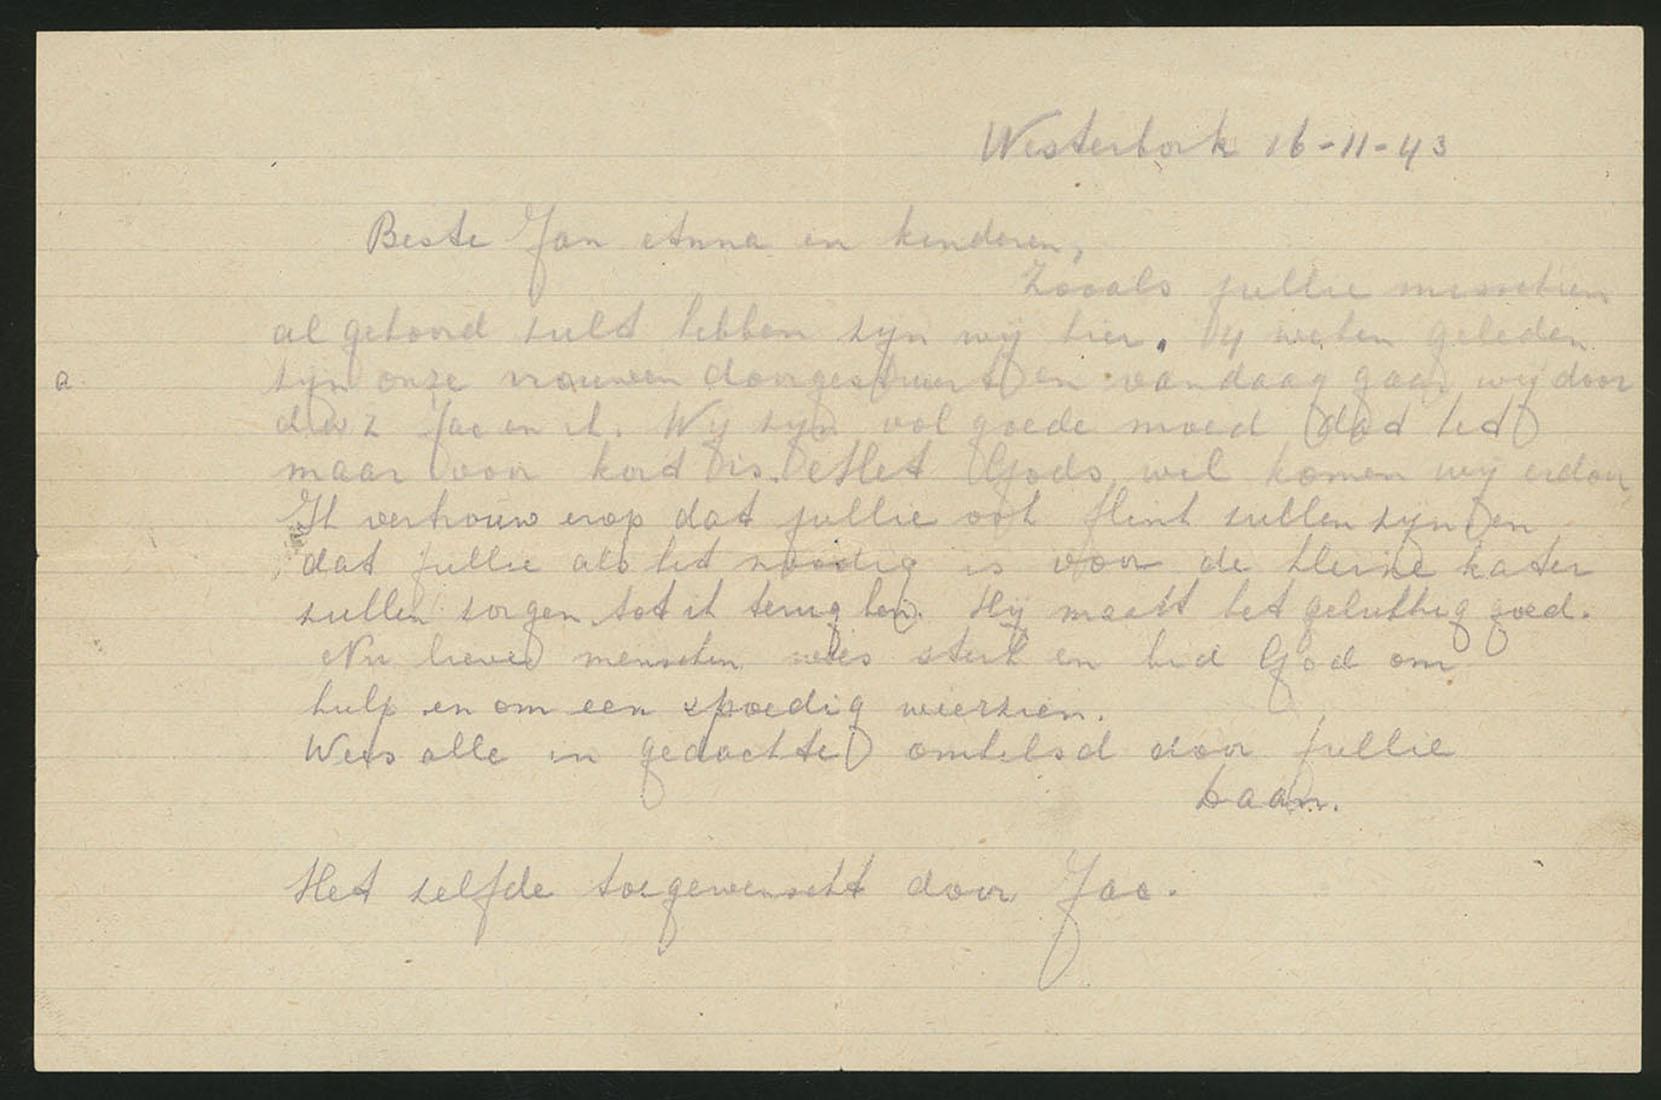 Westerbork 16-11-43
Beste Jan Anna en kinderen,
Zooals jullie messchien
al gehoord sult hebben syn wy hier. 4 weken geleden
syn onze vrouwen doorgestuurt en vandaag gaan wy door
d.w.z Jac en ik. Wy syn vol goede moed dat het
maar voor kord is. Met Gods wil komen wy erdoor
Ik vertrouw erop dat jullie ook flink sullen syn en
dat jullie als het noodig is voor de kleine kater
sullen sorgen tot ik terug ben. Hy maakt het gelukkig goed.
Nu lieve menschen wees sterk en bid God om
hulp en om een spoedig weersien.
Wees alle in gedachte omhelsd door jullie
Daan.
Het selfde toegewenscht door Jac.
a